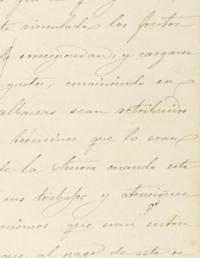 te vinculada los frutos
correspondan, y cargare
gastos, conviniendo en
albaceas sean retribuidos
términos que lo eran
de la Señora cuando este
sus trabajos y atenciones
mismos que eran enton
que al pago de este